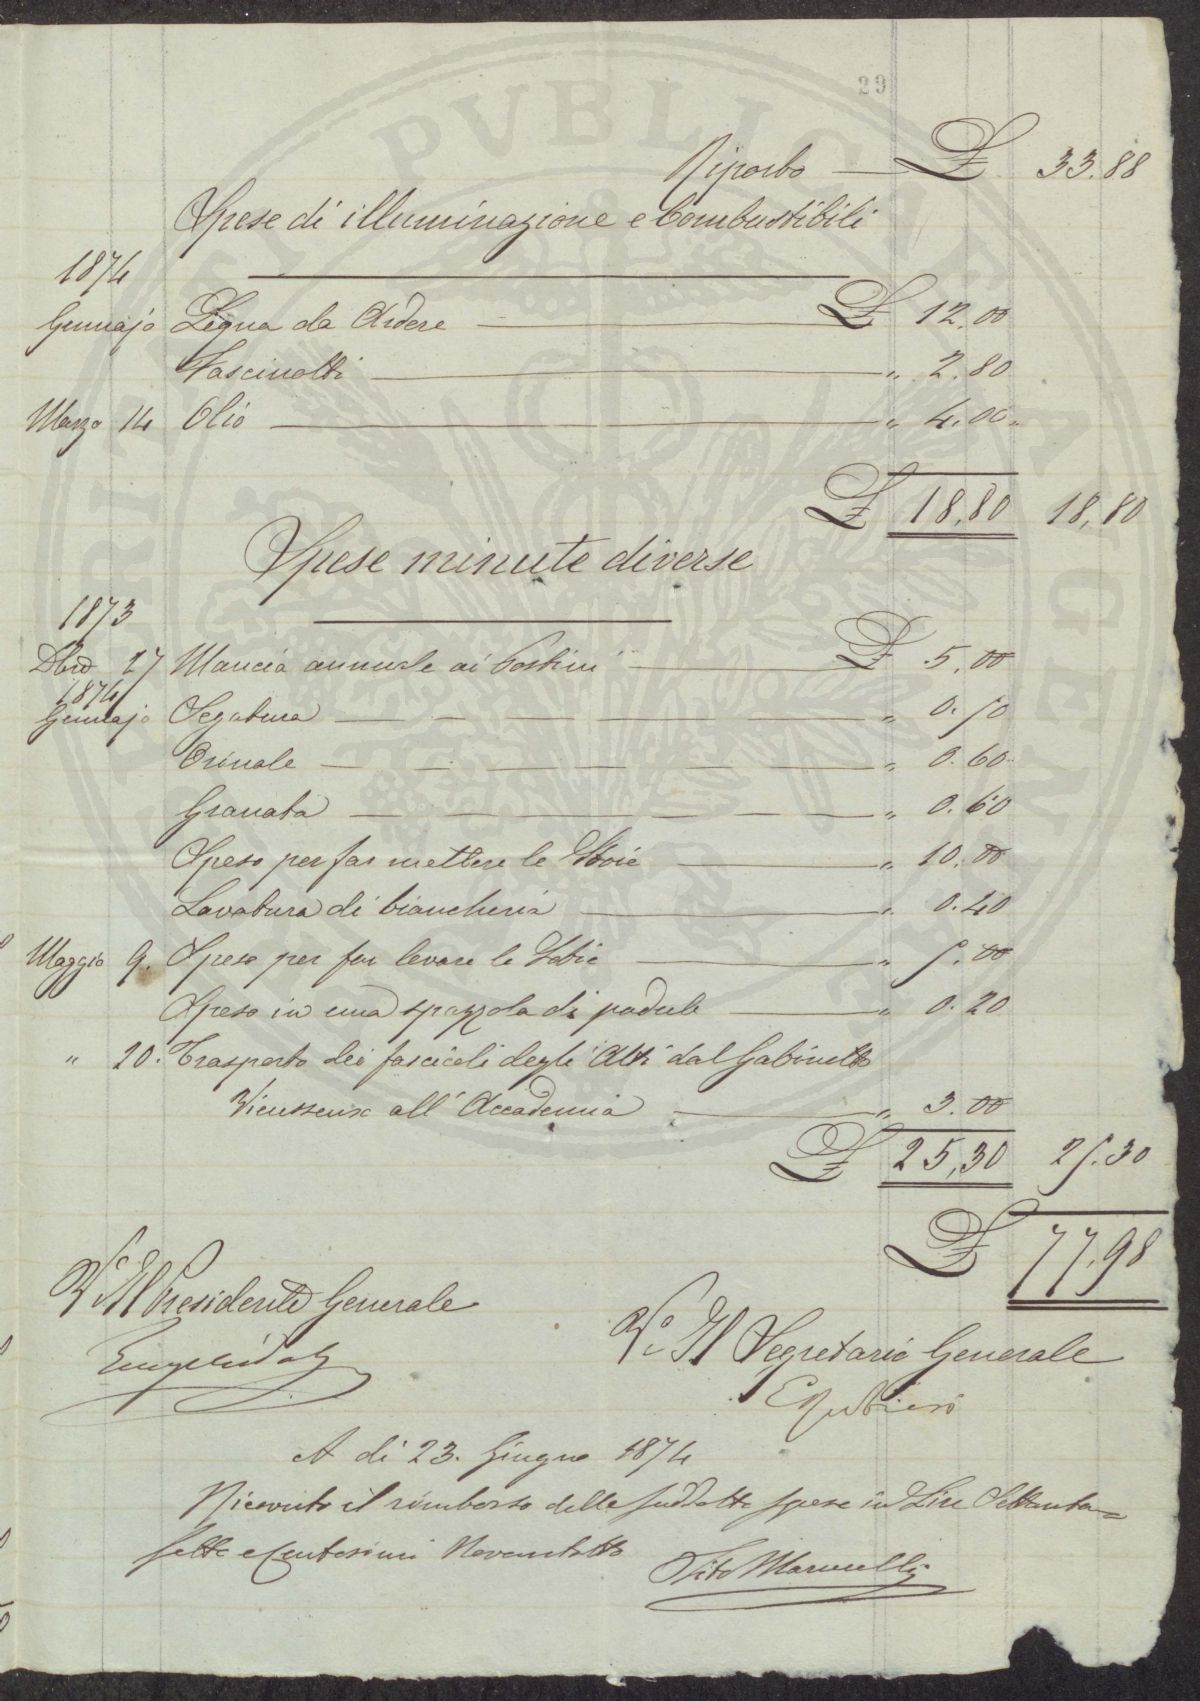 29
Riporto £ 33.88
Spese di illuminazione e Combustibili
1874
Gennajo Legna da Ardere £ 12.00
Fascinotti „ 2.80
Marzo 14 Olio „ 4.00
£ 18,80 18,80
Spese minute diverse
1873
Dbre 27 Mancia annuale ai Postini £ 5.00
1874
Gennajo Segatura „ 0.50
Orinale „ 0.60
Granata „ 0.60
Speso per far mettere le Stoie „ 10.00
Lavatura di biancheria „ 0.40
Maggio 9. Speso per far levare le Stoie „ 5.00
Speso in una spazzola di padule „ 0.20
„ 20. Trasporto dei fascicoli degli Atti dal Gabinetto
Vieusseux all' Accademia „ 3.00
£ 25,30 25.30
£ 77,98
Vo. Il Presidente Generale
Vo. Il Segretario Generale
E Rubieri
A di 23. Giugno 1874
Ricevuto il rimborso delle suddette spese in Lire Settanta=
sette e Centesimi Novantotto
PVBLICAE